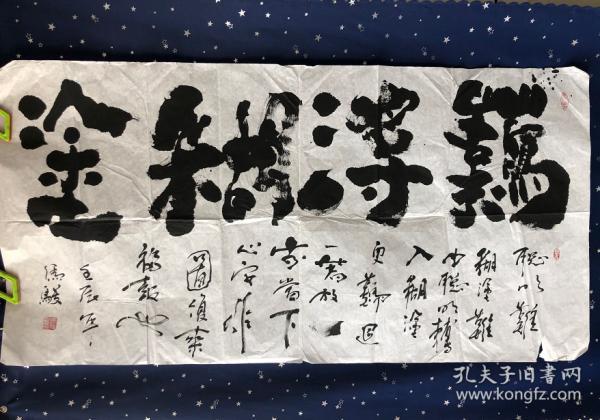 難得糊塗
聰明難
糊塗難
由聰明轉
入糊塗
更難退
一著放一
步當下
心安非
圖後來
福報也
壬辰
孔夫子旧书网
www.kongfz.com